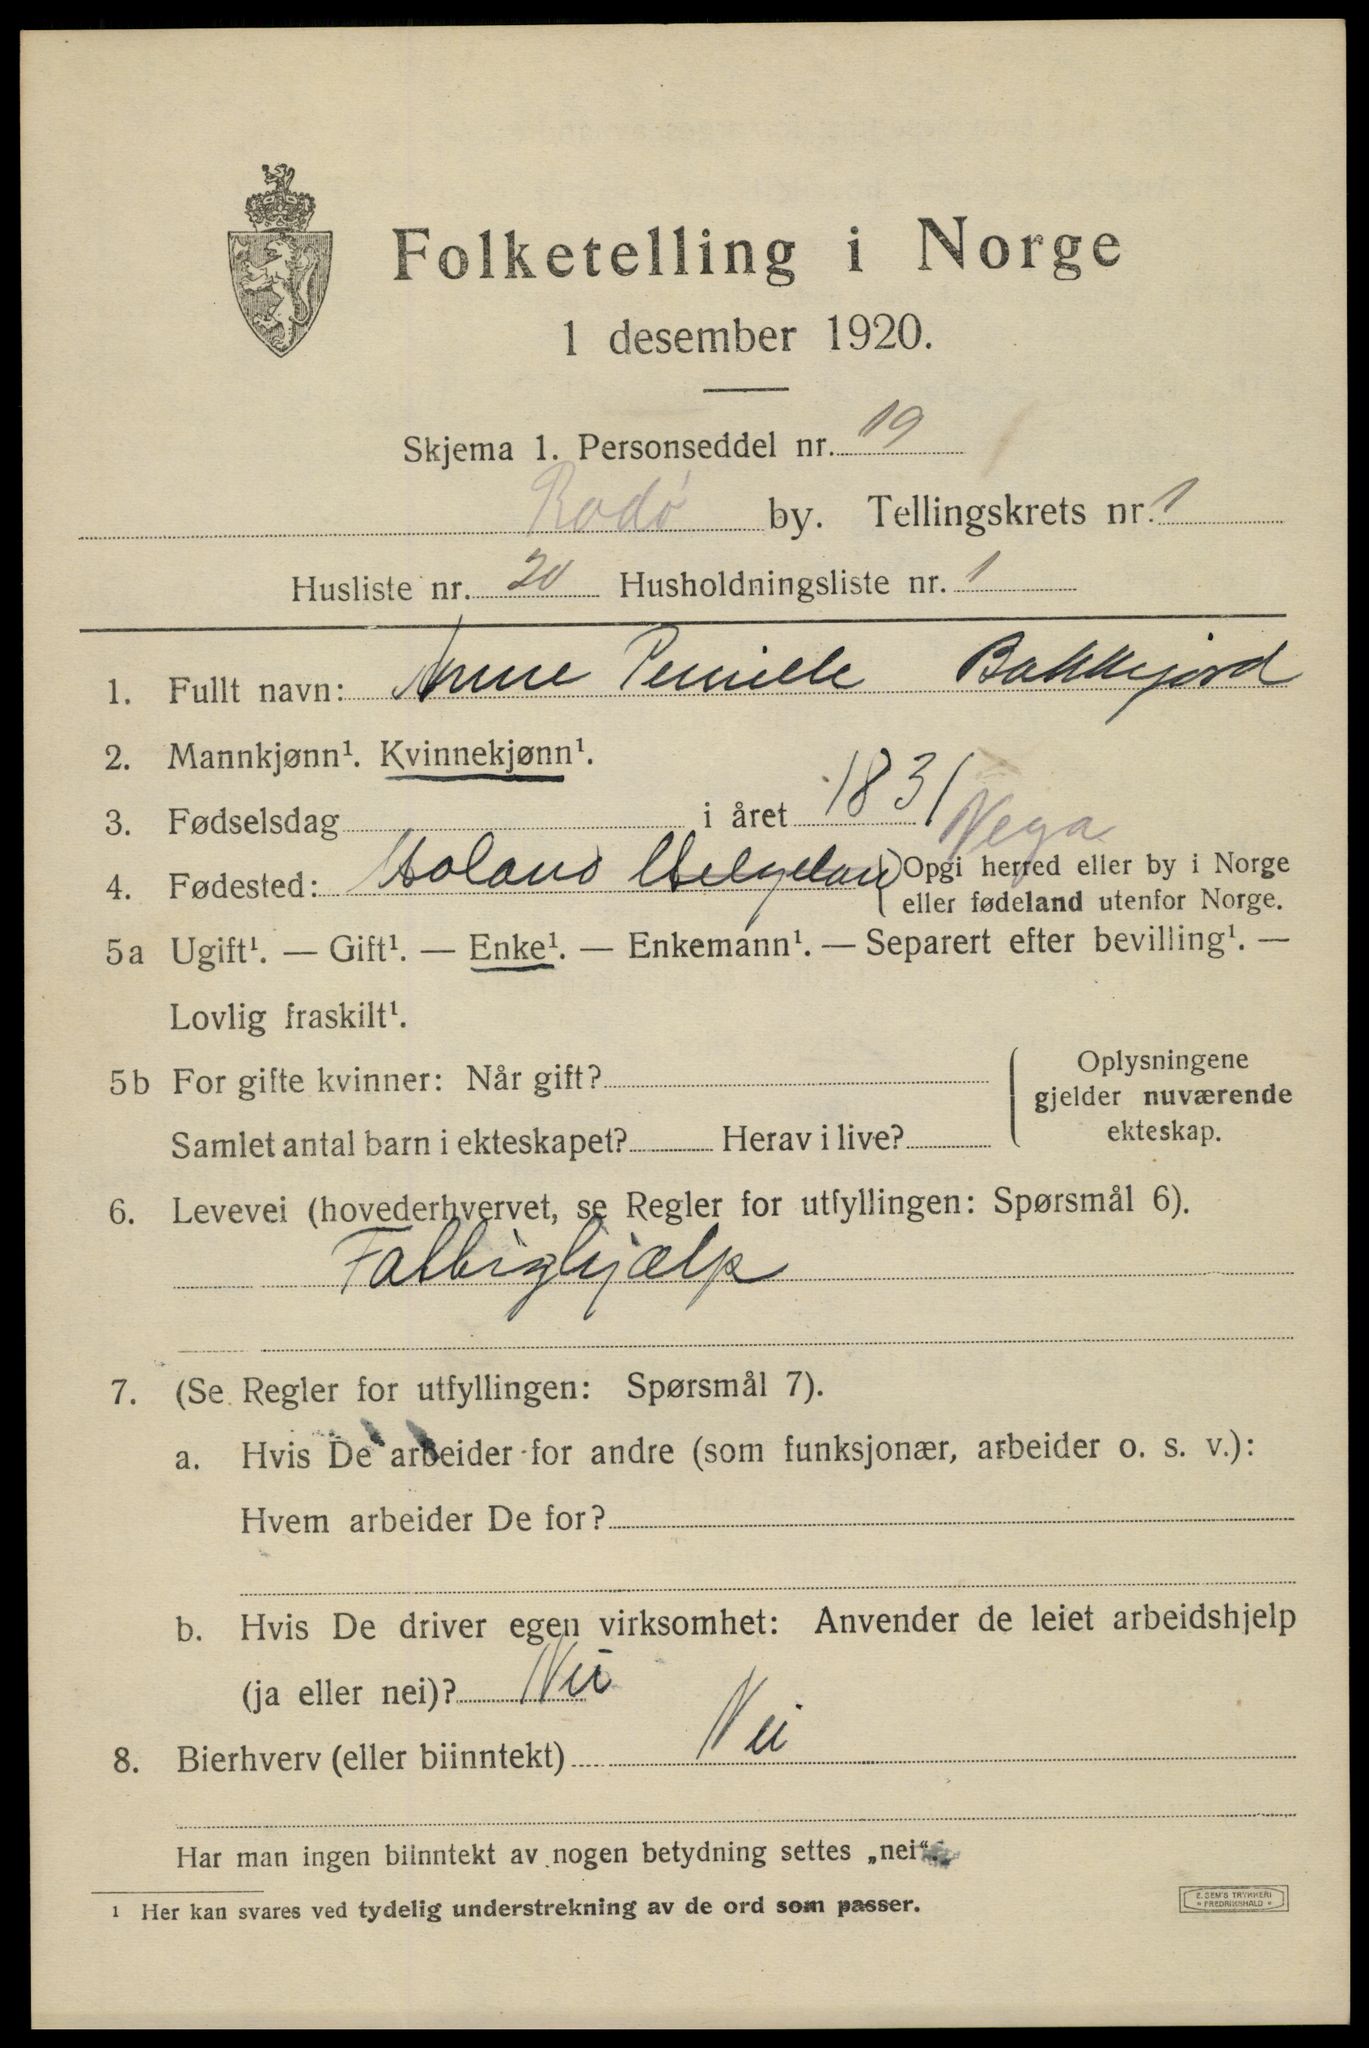 Folketelling i Norge
1 desember 1920.
Skjema 1. Personseddel nr. 19
Rodø by. Tellingskrets nr. 1
Husliste nr. 20 Husholdningsliste nr. 1
1. Fullt navn: Anne Pernille Bakkejord
2. Mannkjønn¹. Kvinnekjønn¹.
3. Fødselsdag i året 1831
Vega
4. Fødested: Holand Helgeland Opgi herred eller by i Norge
eller fødeland utenfor Norge.
5a Ugift¹. — Gift¹. — Enke¹. — Enkemann¹. — Separert efter bevilling¹. —
Lovlig fraskilt¹.
5b For gifte kvinner: Når gift?
Samlet antal barn i ekteskapet? Herav i live?
Oplysningene
gjelder nuværende
ekteskap.
6. Levevei (hovederhvervet, se Regler for utfyllingen: Spørsmål 6).
Fattighjælp
7. (Se Regler for utfyllingen: Spørsmål 7).
a. Hvis De arbeider for andre (som funksjonær, arbeider o. s. v.):
Hvem arbeider De for?
b. Hvis De driver egen virksomhet: Anvender de leiet arbeidshjelp
(ja eller nei)? Nei
8. Bierhverv (eller biinntekt) Nei
Har man ingen biinntekt av nogen betydning settes „nei“.
1 Her kan svares ved tydelig understrekning av de ord som passer.
E. SEM'S TRYKKERI
FREDRIKSHALD